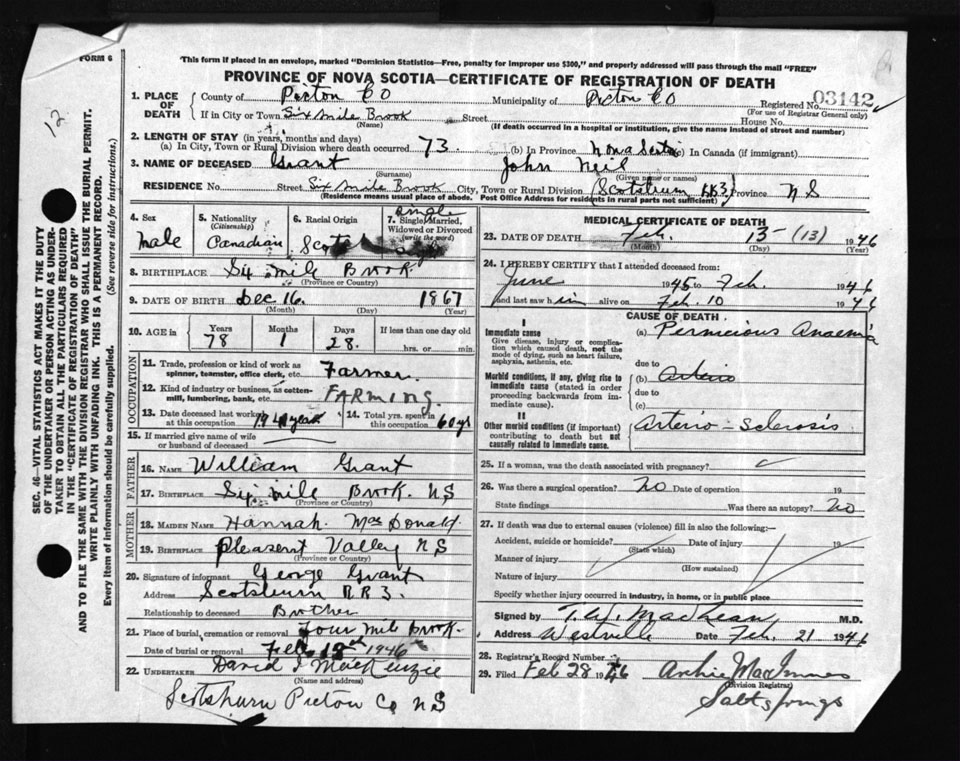 FORM 6
This form if placed in an envelope, marked "Dominion Statistics—Free, penalty for improper use $300," and properly addressed will pass through the mail "FREE"
PROVINCE OF NOVA SCOTIA—CERTIFICATE OF REGISTRATION OF DEATH
12
SEC. 46—VITAL STATISTICS ACT MAKES IT THE DUTY
OF THE UNDERTAKER OR PERSON ACTING AS UNDER-
TAKER TO OBTAIN ALL THE PARTICULARS REQUIRED
IN THE "CERTIFICATE OF REGISTRATION OF DEATH"
AND TO FILE THE SAME WITH THE DIVISION REGISTRAR WHO SHALL ISSUE THE BURIAL PERMIT.
WRITE PLAINLY WITH UNFADING INK. THIS IS A PERMANENT RECORD.
Every item of information should be carefully supplied. (See reverse side for instructions.)
1. PLACE OF DEATH
County of Pictou Co Municipality of Pictou Co Registered No. 03142
(For use of Registrar General only)
If in City or Town Six Mile Brook Street House No.
(Name) (If death occurred in a hospital or institution, give the name instead of street and number)
2. LENGTH OF STAY (in years, months and days)
(a) In City, Town or Rural Division where death occurred 73 (b) In Province Nova Scotia (c) In Canada (if immigrant)
3. NAME OF DECEASED Grant John Neil
(Surname) (Given name or names)
RESIDENCE No. Street Six Mile Brook City, Town or Rural Division (Scotsburn RR3) Province N S
(Residence means usual place of abode. Post Office Address for residents in rural parts not sufficient)
4. Sex Male
5. Nationality (Citizenship) Canadian
6. Racial Origin Scotch
7. Single, Married, Widowed or Divorced (write the word) Single
8. BIRTHPLACE Six mile Brook
(Province or Country)
9. DATE OF BIRTH Dec 16. 1867
(Month) (Day) (Year)
10. AGE in Years 78 Months 1 Days 28. If less than one day old hrs. or min.
OCCUPATION
11. Trade, profession or kind of work as spinner, teamster, office clerk, etc. Farmer.
12. Kind of industry or business, as cotton-mill, lumbering, bank, etc. FARMING.
13. Date deceased last worked at this occupation
14. Total yrs. spent in this occupation 60 yrs
15. If married give name of wife or husband of deceased
FATHER
16. NAME William Grant
17. BIRTHPLACE Six mile Brook. NS
(Province or Country)
MOTHER
18. MAIDEN NAME Hannah MacDonald.
19. BIRTHPLACE Pleasent Valley NS
(Province or Country)
20. Signature of informant George Grant
Address Scotsburn R.R 3.
Relationship to deceased Brother
21. Place of burial, cremation or removal Four Mile Brook.
Date of burial or removal Feb 1946
22. UNDERTAKER David J MacKenzie
(Name and address)
Scotsburn Pictou Co NS
MEDICAL CERTIFICATE OF DEATH
23. DATE OF DEATH Feb. 13 (13) 1946
(Month) (Day) (Year)
24. I HEREBY CERTIFY that I attended deceased from:
June 1945 to Feb. 1946
and last saw him alive on Feb. 10 1946
CAUSE OF DEATH
I
Immediate cause
Give disease, injury or complication which caused death, not the mode of dying, such as heart failure, asphyxia, asthenia, etc.
(a) Pernicious Anaemia
due to
Morbid conditions, if any, giving rise to immediate cause (stated in order proceeding backwards from immediate cause).
(b) Arterio
due to
(c)
II
Other morbid conditions (if important) contributing to death but not causally related to immediate cause.
Arterio-Sclerosis
25. If a woman, was the death associated with pregnancy?
26. Was there a surgical operation? No Date of operation 19
State findings Was there an autopsy? No
27. If death was due to external causes (violence) fill in also the following:—
Accident, suicide or homicide? Date of injury 19
(State which)
Manner of injury
(How sustained)
Nature of injury
Specify whether injury occurred in industry, in home, or in public place
Signed by T.W. MacLean M.D.
Address Westville Date Feb. 21 1946
28. Registrar's Record Number
29. Filed Feb 28 1946 Archie MacInnes
(Division Registrar)
Saltsprings